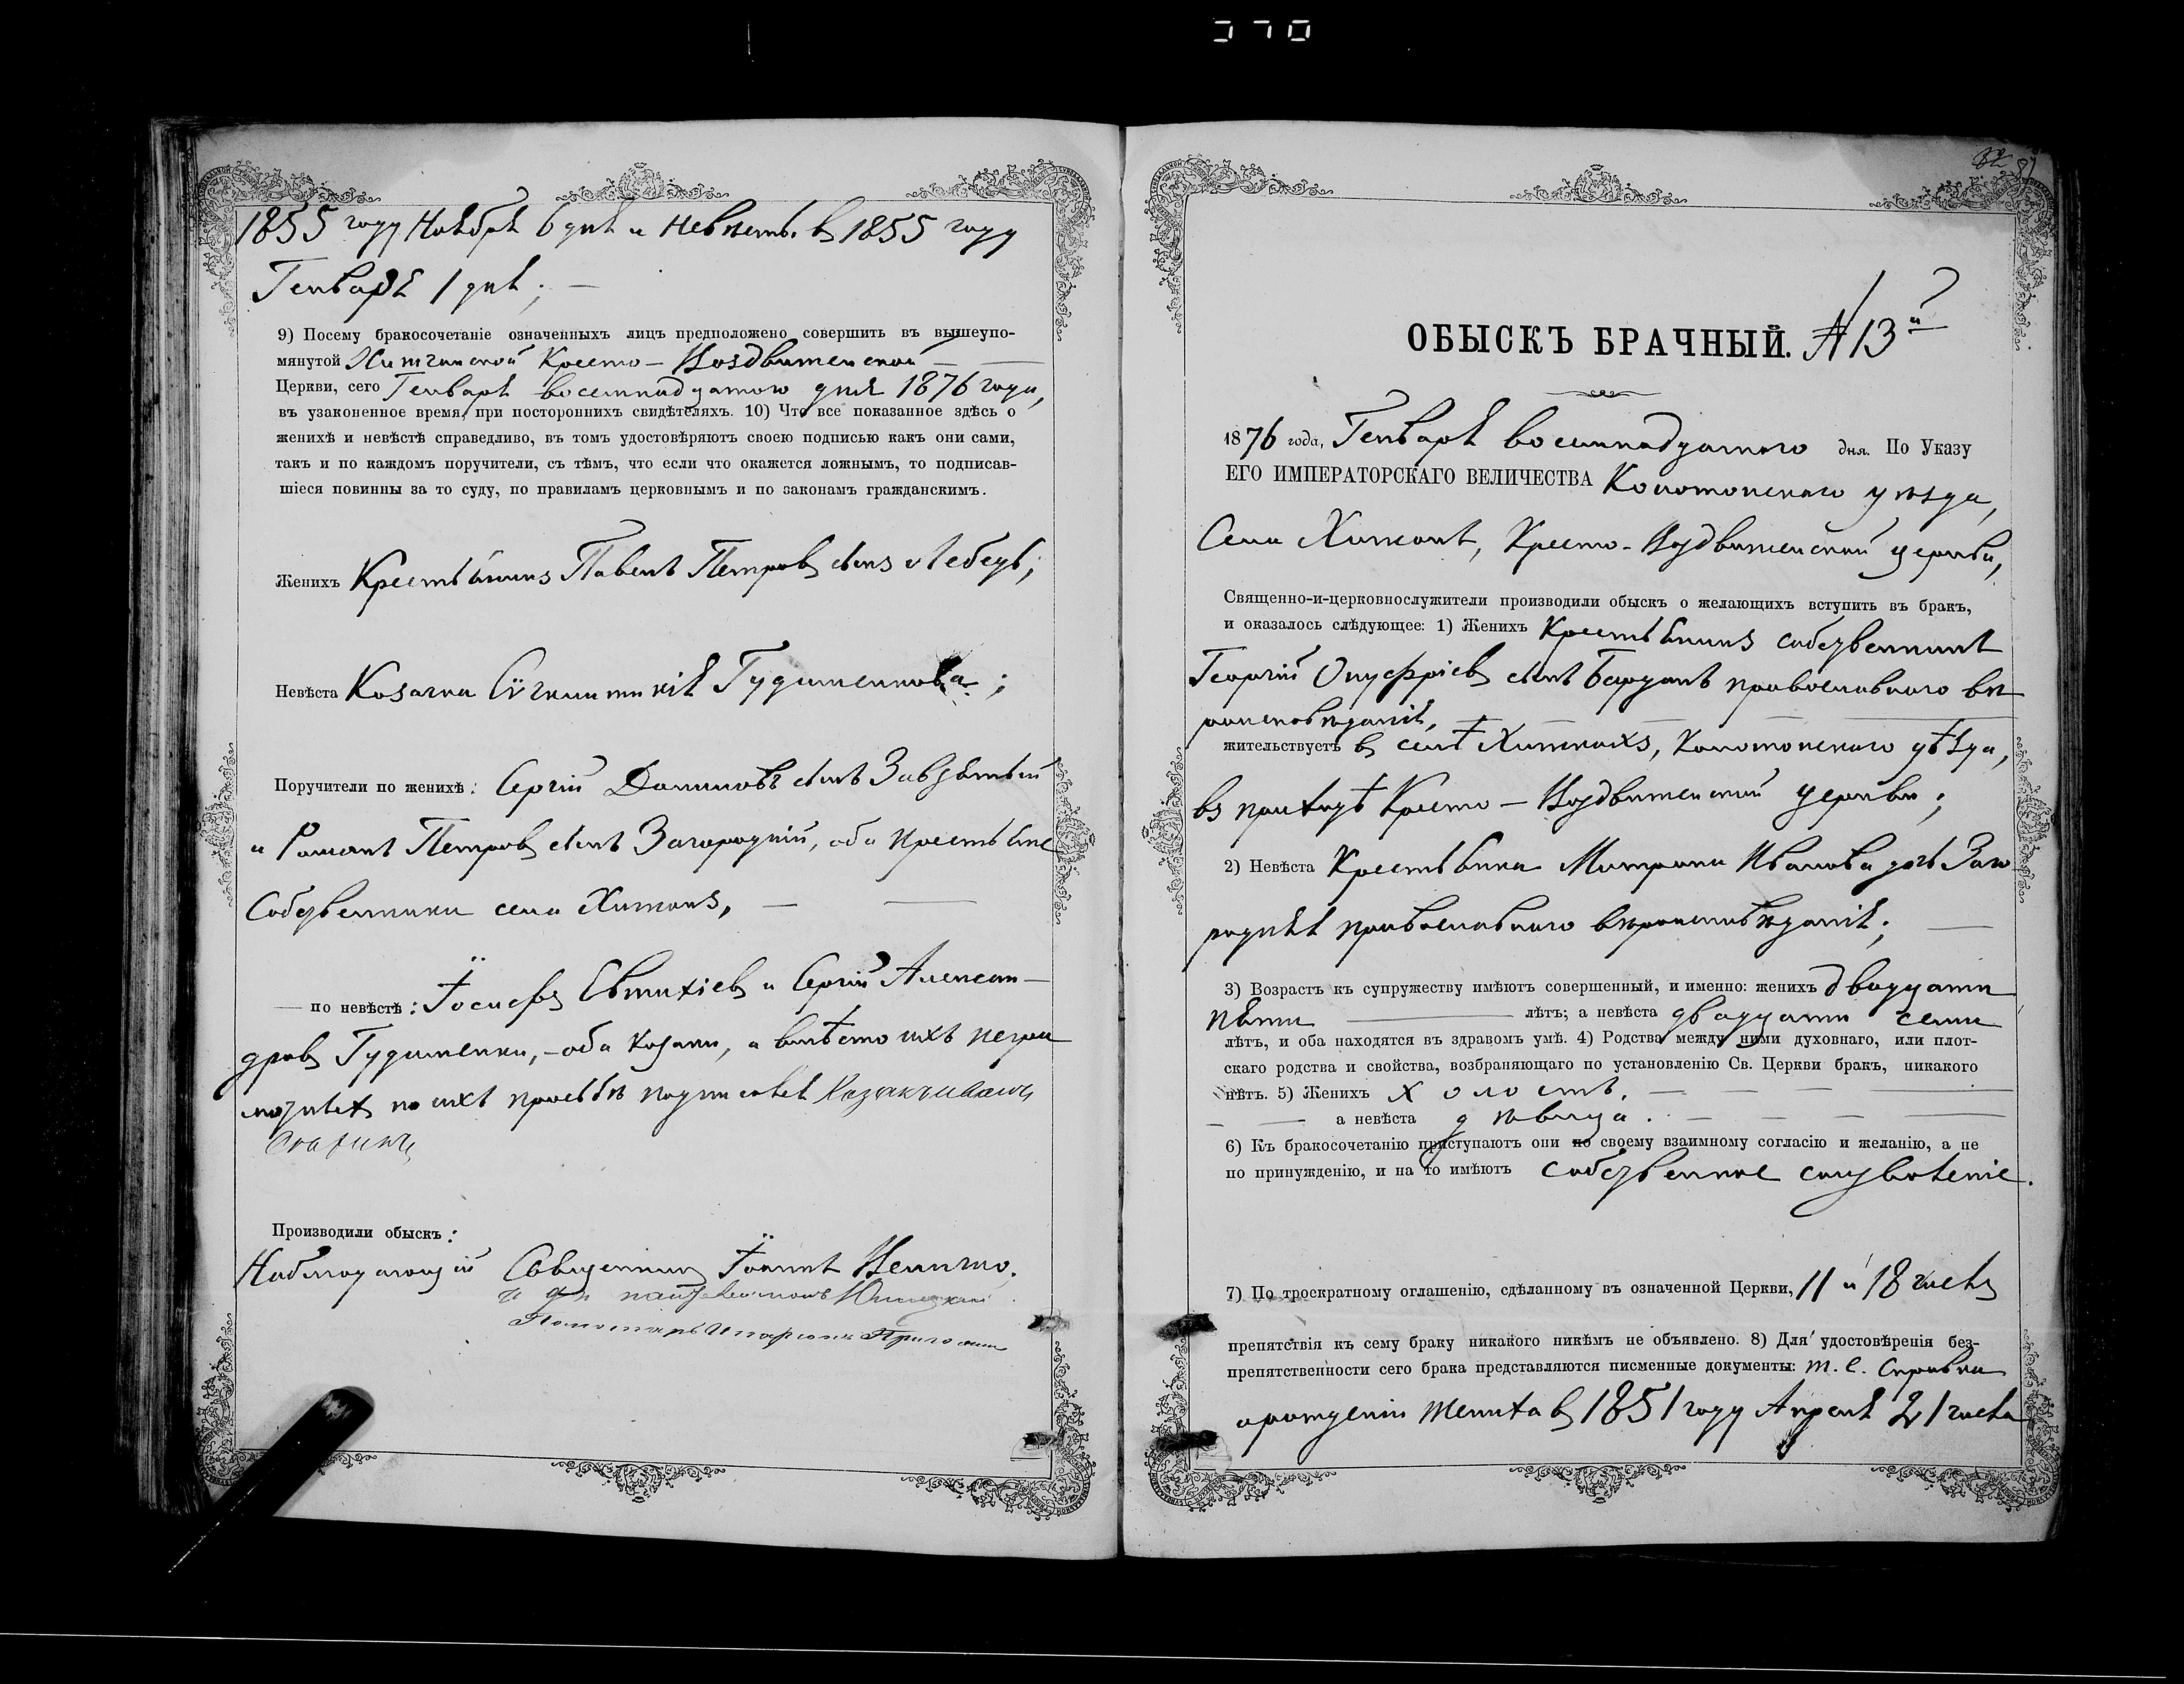 1855 году Ноября 6 дня и Невѣсты. въ 1855 году
Генваря 1 дня; —
9) Посему бракосочетаніе означенныхъ лицъ предположено совершить въ вышеупо-
мянутой Кресто-Воздвиженской —
Церкви, сего Генваря восемнадцатого дня 1876 года,
въ узаконенное время, при постороннихъ свидѣтеляхъ. 10) Что все показанное здѣсь о
женихѣ и невѣстѣ справедливо, въ томъ удостовѣряютъ своею подписью какъ они сами,
такъ и по каждомъ поручители, съ тѣмъ, что если что окажется ложнымъ, то подписав-
шіеся повинны за то суду, по правиламъ церковнымъ и по законамъ гражданскимъ.
Женихъ Крестьянинъ Павелъ Петровъ сынъ Лебедь;
Невѣста Козачка Гудименкова;
Поручители по женихѣ: Сергій сынъ
и Романъ Петровъ сынъ Загородній, оба крестьяне
Собственники села
— по невѣстѣ: Іосифъ Евтихіевъ и Сергій Алексан-
дровъ Гудименки, — оба козаки, а вмѣсто ихъ негра
мотныхъ по ихъ прозьбѣ подписался Козакъ
Производили обыскъ:
Наблюдающій Священникъ Іоаннъ
Пономарь
370
ОБЫСКЪ БРАЧНЫЙ. № 13й
1876 года, Генваря восемнадцатого дня. По Указу
ЕГО ИМПЕРАТОРСКАГО ВЕЛИЧЕСТВА Конотопскаго уѣзда,
Села Хижокъ, Кресто-Воздвиженской церкви,
Священно-и-церковнослужители производили обыскъ о желающихъ вступить въ бракъ,
и оказалось слѣдующее: 1) Женихъ Крестьянинъ собственникъ
Георгій Онуфріевъ сынъ православнаго вѣ
роисповѣданія, —
жительствуетъ въ селѣ Хижкахъ, Конотопскаго уѣзда,
въ приходѣ Кресто-Воздвиженской Церкви;
2) Невѣста Крестьянка Матрона Иванова дочь Заго
родняя православнаго вѣроисповѣданія; —
3) Возрастъ къ супружеству имѣютъ совершенный, и именно: женихъ двадцати
пяти — лѣтъ; а невѣста двадцати семи
лѣтъ, и оба находятся въ здравомъ умѣ. 4) Родства между ними духовнаго, или плот-
скаго родства и свойства, возбраняющаго по установленію Св. Церкви бракъ, никакого
нѣтъ. 5) Женихъ холостъ. —
— а невѣста дѣвица. —
6) Къ бракосочетанію приступаютъ они по своему взаимному согласію и желанію, а не
по принужденію, и на то имѣютъ собственное соизволеніе.
7) По троекратному оглашенію, сдѣланному въ означенной Церкви, 11 и 18 чиселъ
препятствія къ сему браку никакого никѣмъ не объявлено. 8) Для удостовѣренія без-
препятственности сего брака представляются писменные документы: т. е. Справка
о рожденіи жениха въ 1851 году Апреля 21 числа